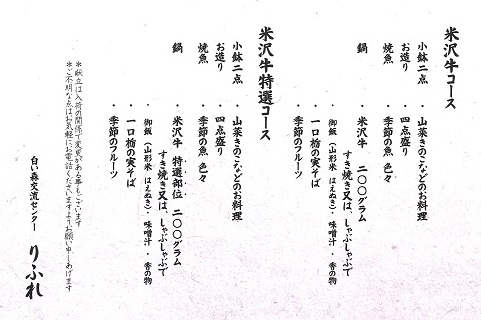 米沢牛コース
小鉢二点 ・山菜きのこなどのお料理
お造り ・四点盛り
焼魚 ・季節の魚 色々
鍋 ・米沢牛 二〇〇グラム
すき焼き又は、しゃぶしゃぶで
・御飯（山形米 はえぬき）・味噌汁 ・香の物
・一口栃の実そば
・季節のフルーツ
米沢牛特選コース
小鉢二点 ・山菜きのこなどのお料理
お造り ・四点盛り
焼魚 ・季節の魚 色々
鍋 ・米沢牛 特選部位 二〇〇グラム
すき焼き又は、しゃぶしゃぶで
・御飯（山形米 はえぬき）・味噌汁 ・香の物
・一口栃の実そば
・季節のフルーツ
＊献立は入荷の関係で変更がある事もございます
＊ご不明な点はお気軽にお電話くださいますようお願い申しあげます
白い森交流センター りふれ